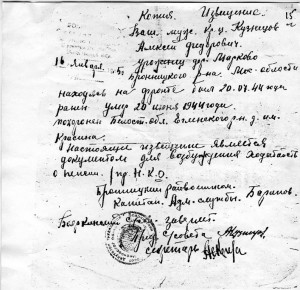 Копия Извещение. 15
Ваш муж. кр-ц Кузнецов
Алексей Федорович.
16 Января уроженец др. Марково
Бронницкого р-на. Мос. области
находясь на фронте был 20.07.44 года
ранен умер 20 июня 1944 года.
похоронен обл. Еленского р-н. д. им.
Красина.
Настоящее извещение является
документом для возбуждения ходатайств
о пенсии. (пр. Н.К.О.
Бронницкий райвоенком.
Капитан Адм. службы. Баринов.
завхит.
Пред. с/совета
секретарь